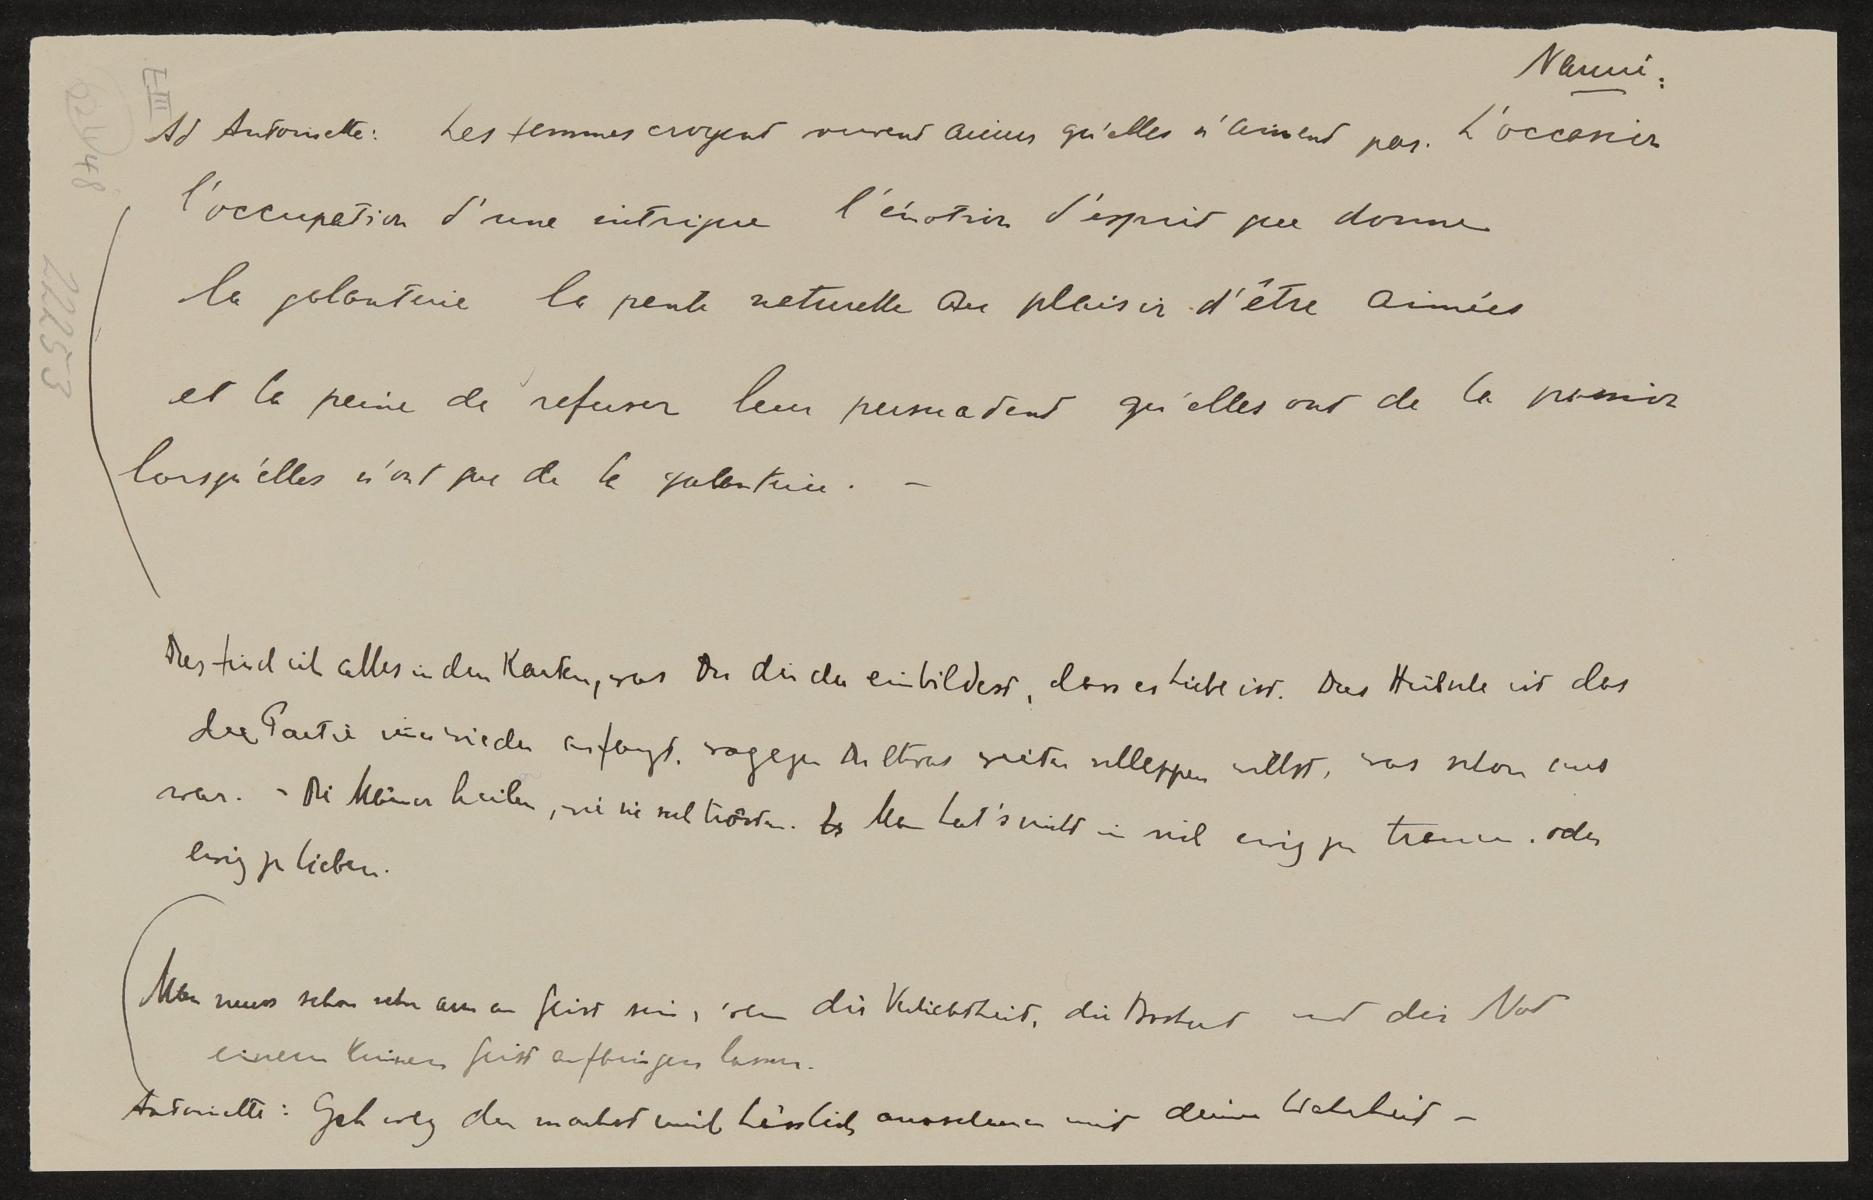 Nanni:
Ad Antoinette: Les femmes croyent souvent aimer qu'elles n'aiment pas. L'occasion
l'occupation d'une intrigue l'émotion d'esprit que donne
la galanterie la pente naturelle au plaisir d'être aimées
et la peine de refuser leur persuadent qu'elles ont de la passion
lorsqu'elles n'ont que de la galanterie. –
Das find ich alles in den Karten, was Du dir da einbildest, dass es Liebe ist. Das Hübsche ist das
die Partie immer wieder anfangt. wogegen Du etwas weiter schleppen willst, was schon aus
war. – Die Männer heilen, wie sie sich trösten. Man hat's nicht in sich ewig zu trauern. oder
ewig zu lieben.
Man muss schon sehr arm an Geist sein, wenn die Verliebtheit, die Bosheit und die Not
einem keinen Geist aufbringen lassen.
Antoinette: Geh weg du machst mich hässlich aussehen mit deiner Wahrheit –
E III
52.V.48
222 53